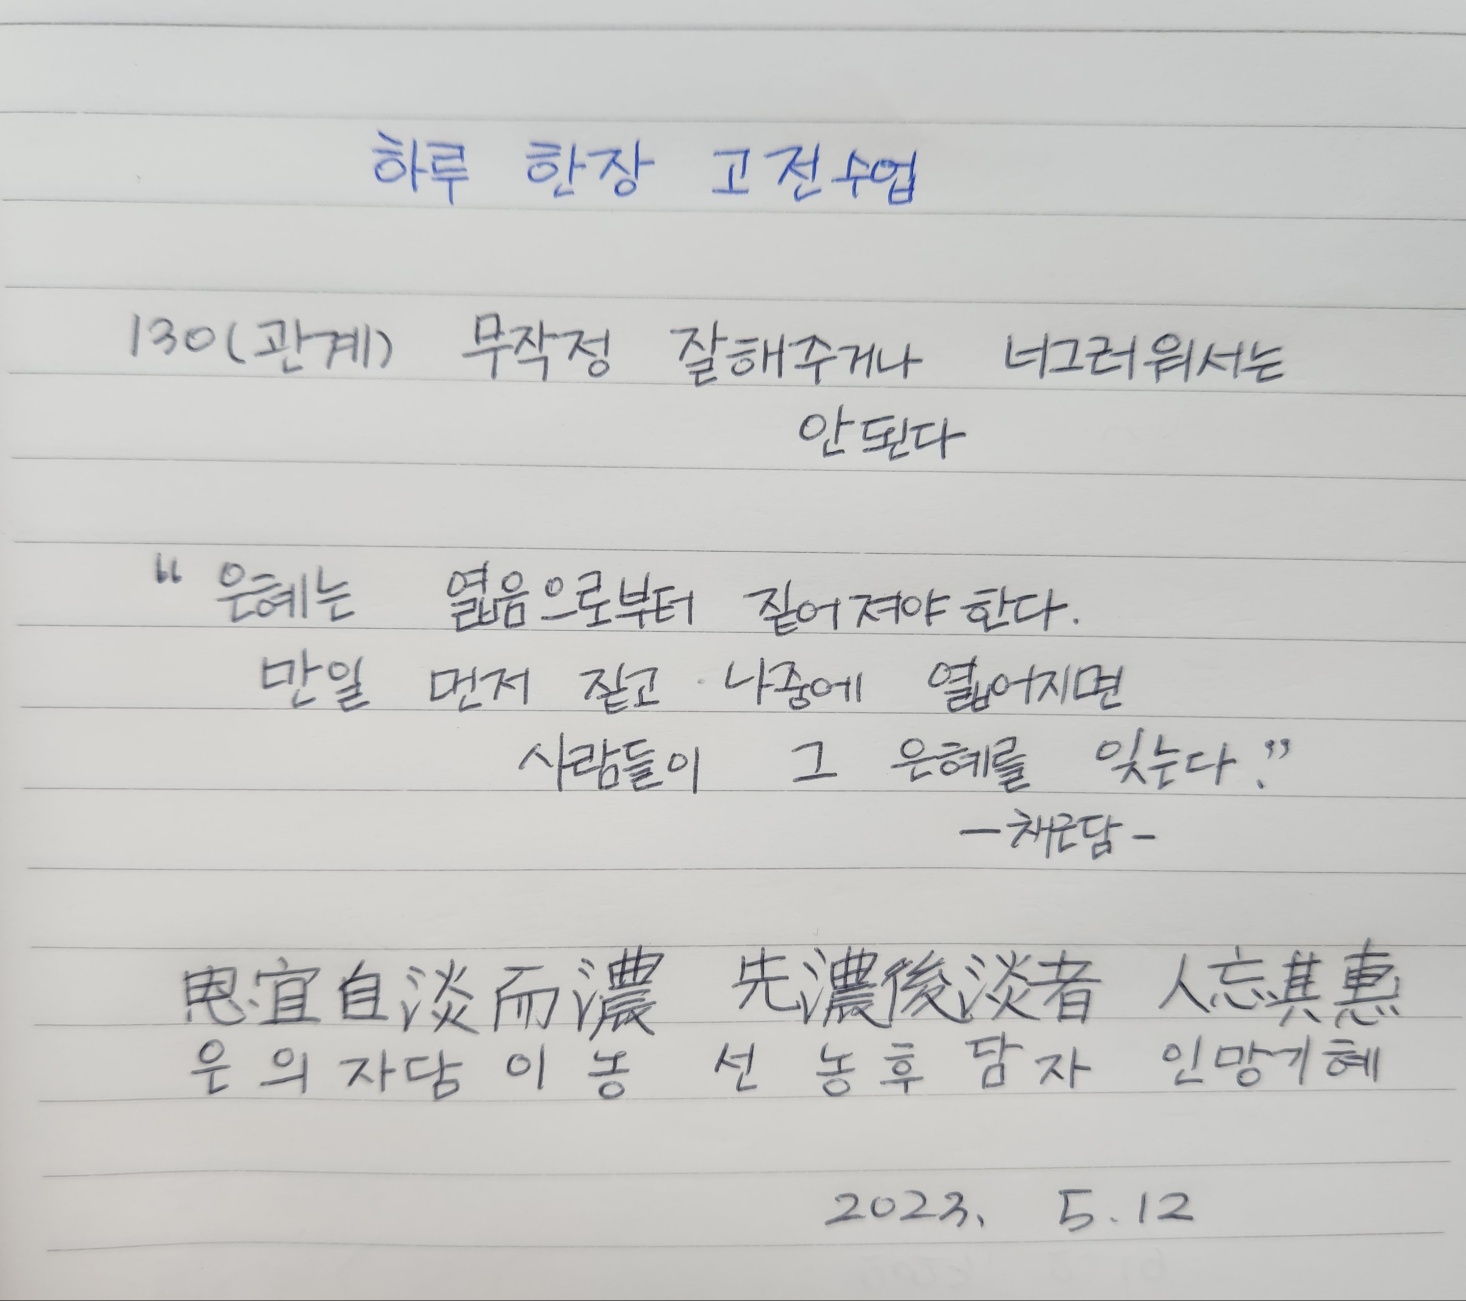 하루 한장 고전수업
130(관계) 무작정 잘해주거나 너그러워서는
안된다
“은혜는 엷음으로부터 짙어져야한다.
만일 먼저 짙고 나중에 엷어지면
사람들이 그 은혜를 잊는다.”
-채근담-
恩宜自淡而濃 先濃後淡者 人忘其惠
은의자담이농 선농후담자 인망기혜
2023. 5.12